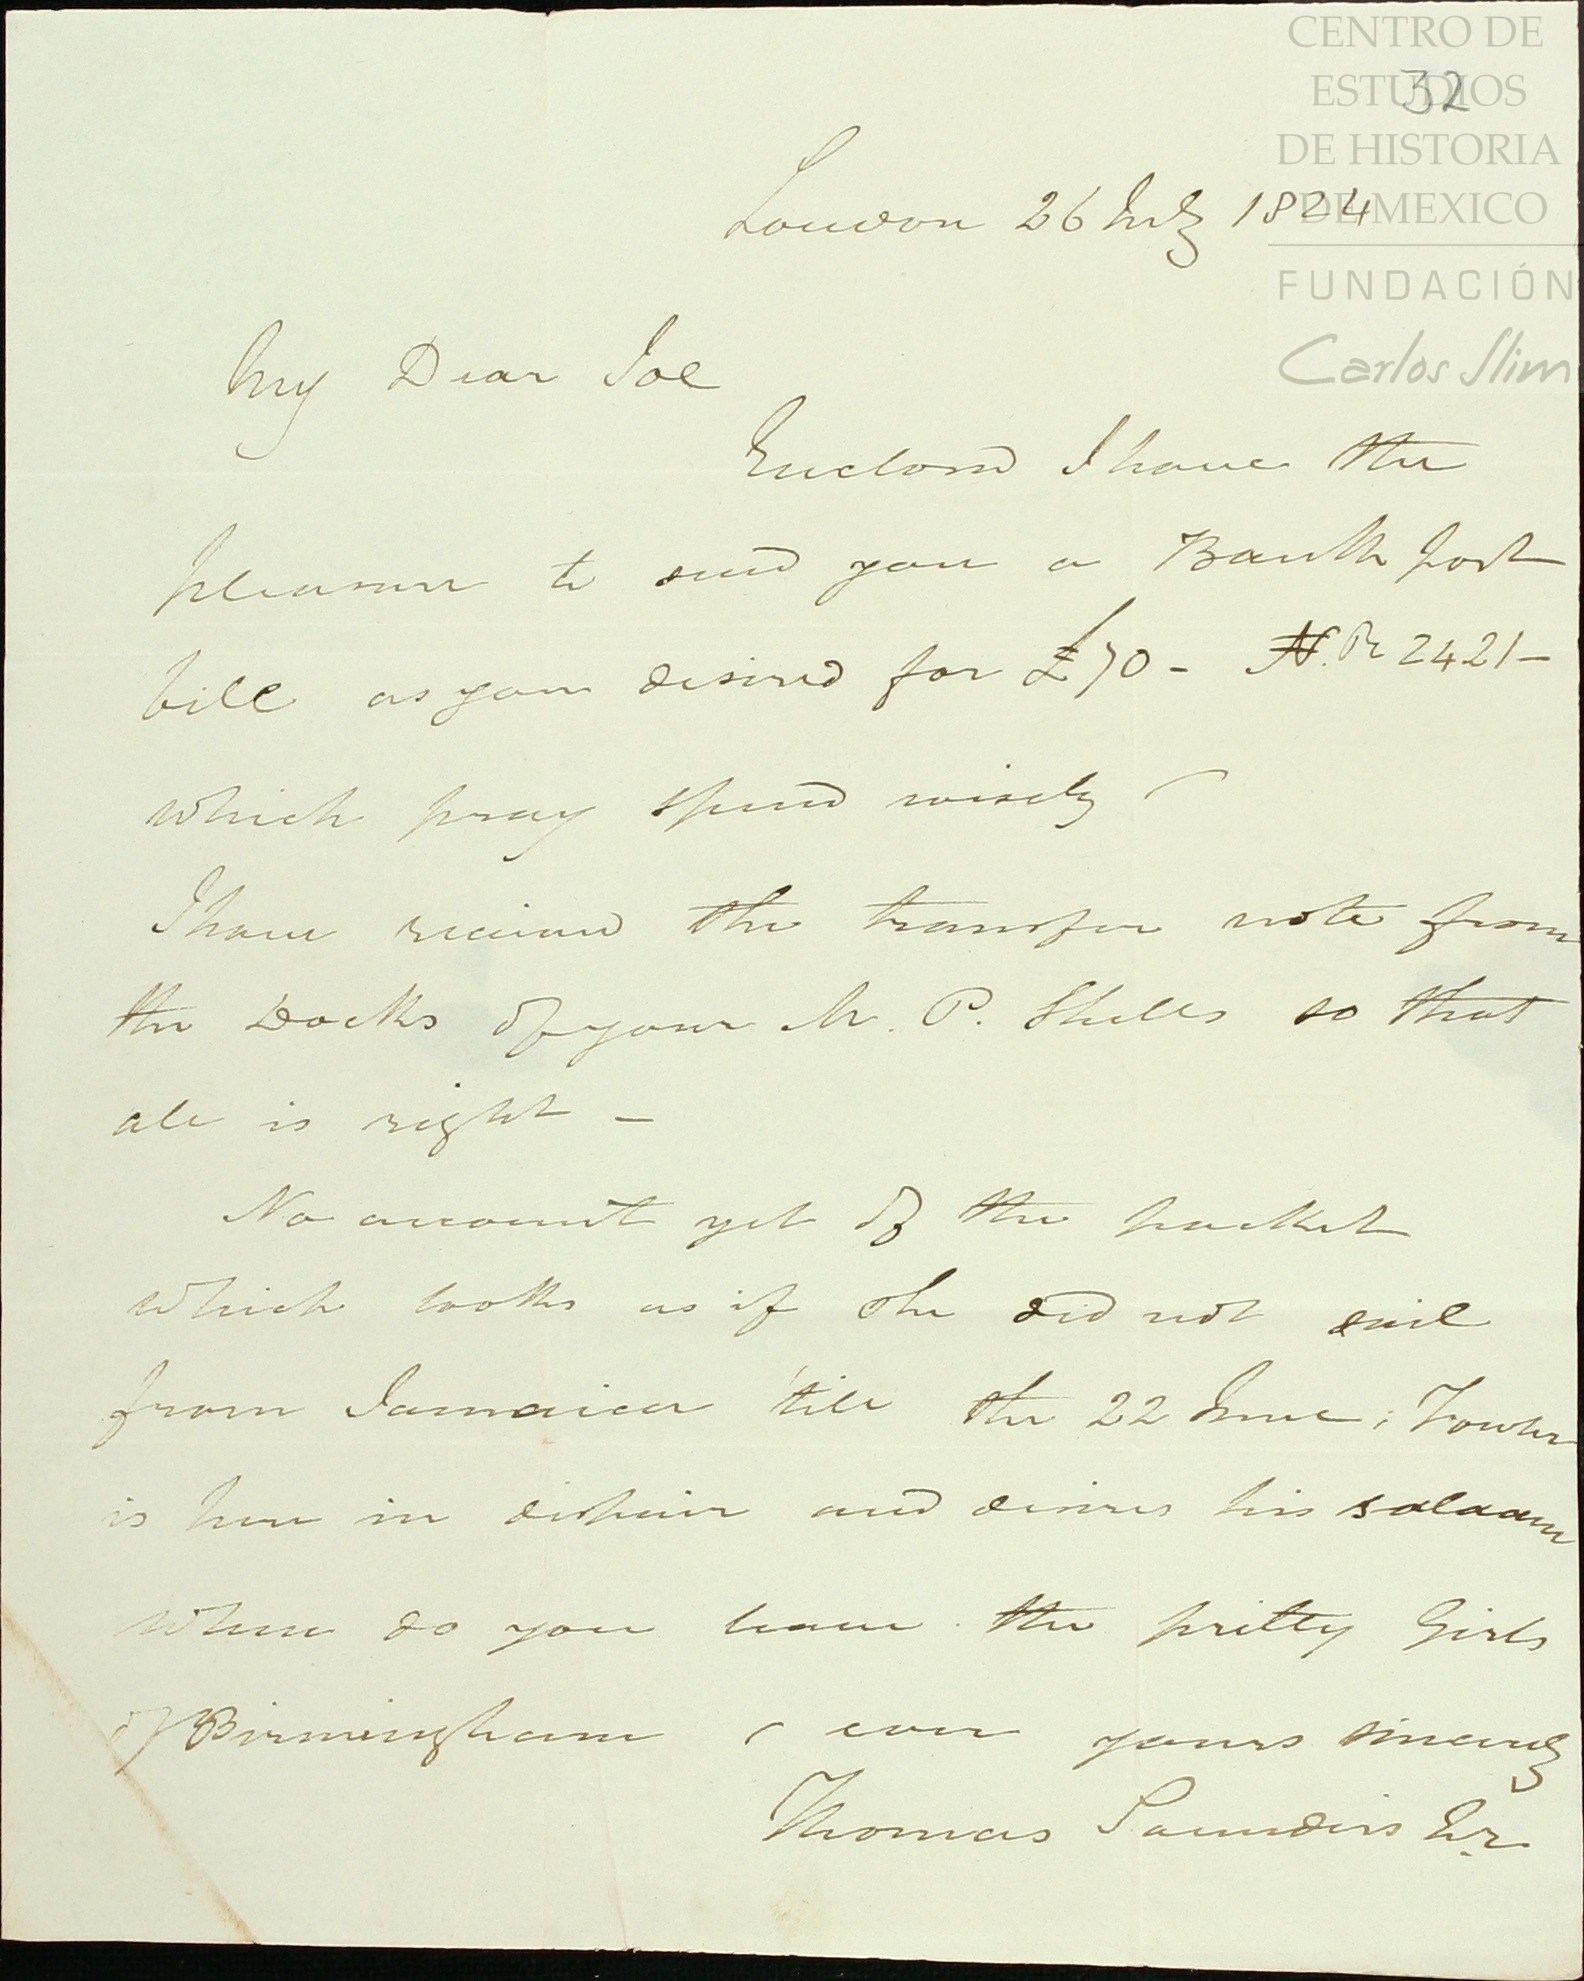 CENTRO DE
ESTUDIOS
DE HISTORIA
DE MEXICO
FUNDACIÓN
Carlos Slim
32
London 26 July 1824
My Dear Joe
Enclosed I have the
pleasure to send you a Bank post
bill as you desired for £70 - N. 2421 -
which pray spend wisely -
I have received the transfer note from
the Docks of your M. P. Shells so that
all is right -
No account yet of the packet
which looks as if she did not sail
from Jamaica 'till the 22 June;
is here in despair and desires his salaam
when do you leave the pretty Girls
of Birmingham - ever yours sincerely
Thomas Saunders Jr.